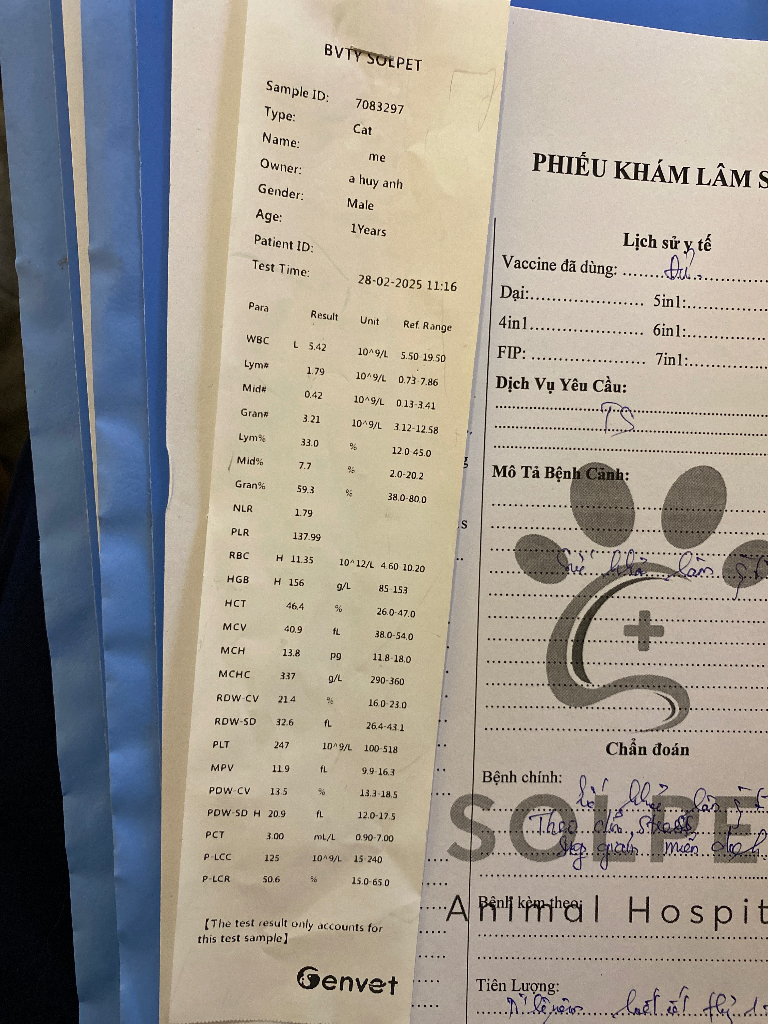 BVTY SOLPET
Sample ID: 7083297
Type: Cat
Name: me
Owner: a huy anh
Gender: Male
Age: 1Years
Patient ID:
Test Time: 28-02-2025 11:16
Para Result Unit Ref. Range
WBC L 5.42 10^9/L 5.50-19.50
Lym# 1.79 10^9/L 0.73-7.86
Mid# 0.42 10^9/L 0.13-3.41
Gran# 3.21 10^9/L 3.12-12.58
Lym% 33.0 % 12.0-45.0
Mid% 7.7 % 2.0-20.2
Gran% 59.3 % 38.0-80.0
NLR 1.79
PLR 137.99
RBC H 11.35 10^12/L 4.60-10.20
HGB H 156 g/L 85-153
HCT 46.4 % 26.0-47.0
MCV 40.9 fL 38.0-54.0
MCH 13.8 pg 11.8-18.0
MCHC 337 g/L 290-360
RDW-CV 21.4 % 16.0-23.0
RDW-SD 32.6 fL 26.4-43.1
PLT 247 10^9/L 100-518
MPV 11.9 fL 9.9-16.3
PDW-CV 13.5 % 13.3-18.5
PDW-SD H 20.9 fL 12.0-17.5
PCT 3.00 mL/L 0.90-7.00
P-LCC 125 10^9/L 15-240
P-LCR 50.6 % 15.0-65.0
【The test result only accounts for
this test sample】
Genvet
PHIẾU KHÁM LÂM S
Lịch sử y tế
Vaccine đã dùng: Đủ.
Dại: 5in1:
4in1 6in1:
FIP: 7in1:
Dịch Vụ Yêu Cầu:
TS
Mô Tả Bệnh Cảnh:
lần
Chẩn đoán
Bệnh chính:
Theo dõi stress
miễn dịch
SOLPE
Bệnh kèm theo:
Animal Hospit
Tiên Lượng: